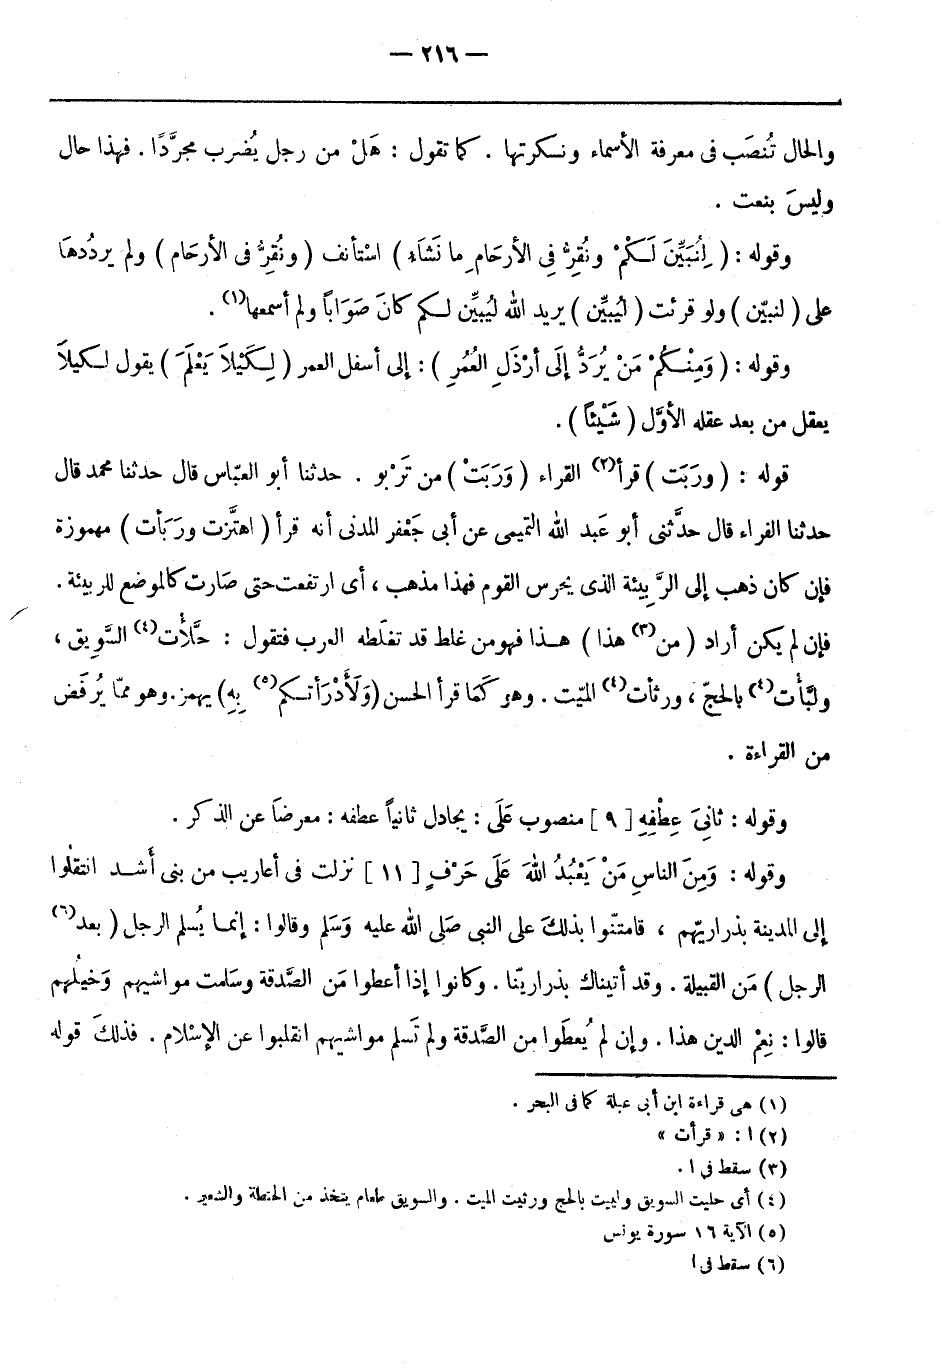 — ٢١٦ —
والحال تُنصَب فى معرفة الأسماء ونكرتها . كما تقول : هَلْ من رجل يُضرب مجرَّدًا . فهذا حال
وليسَ بنعت .
وقوله : ( لِنُبَيِّنَ لَكُمْ ونُقِرُّ فِى الأرحَامِ ما نَشَاءُ ) اسْتأنف ( ونُقِرُّ فى الأرحَام ) ولم يردُدهَا
على ( لنبيّن ) ولو قرئت ( ليُبيِّن ) يريد الله ليُبيِّن لكم كانَ صَوَاباً ولم أسمعها(١) .
وقوله : ( وَمِنْكُمْ مَنْ يُرَدُّ إلَى أرْذَلِ العُمُرِ ) : إلى أسفل العمر ( لِكَيْلاَ يَعْلَمَ ) يقول لكيلاَ
يعقل من بعد عقله الأوَّل ( شَيْئاً ) .
قوله : ( ورَبَت ) قرأ(٢) القراء ( وَرَبَتْ ) من تَرْبو . حدثنا أبو العبّاس قال حدثنا محمد قال
حدثنا الفراء قال حدَّثنى أبو عَبد الله التميمى عن أبى جَعْفر المدنى أنه قرأ ( اهتَّزت ورَبَأت ) مهموزة
فإن كان ذهب إلى الرَّبِيئة الذى يحرس القوم فهذا مذهب ، أى ارتفعت حتى صَارت كالموضع للربيئة .
فإن لم يكن أراد ( من(٣) هذا ) هذا فهو من غلط قد تغلَطه العرب فتقول : حَلَّأْت(٤) السَّوِيق ،
ولبَّأْت(٤) بالحجّ ، ورثأت(٤) الميّت . وهو كَمَا قرأ الحسن ( وَلَأَدْرَأتكم(٥) بِهِ ) يهمز . وهو ممّا يُرفَض
من القراءة .
وقوله : ثانِىَ عِطْفِهِ [ ٩ ] منصوب عَلَى : يجادل ثانياً عطفه : معرضَا عن الذكر .
وقوله : وَمِنَ الناسِ مَنْ يَعْبُدُ اللهَ عَلَى حَرْفٍ [ ١١ ] نزلت فى أعاريب من بنى أَسَد انتقلُوا
إلى المدينة بذراريّهم ، فامتنّوا بذلكَ على النبى صَلى الله عليه وَسَلم وقالوا : إنما يُسلم الرجل ( بعد(٦)
الرجل ) مَن القبيلة . وقد أتيناك بذرارِيّنا . وكانوا إذا أعطوا مَن الصَّدقة وسَلمت مواشيهم وَخيلُهم
قالوا : نِعْمَ الدين هذا . وإن لم يُعطَوا من الصَّدقة ولم تَسلم مواشيهم انقلبوا عن الإسْلام . فذلكَ قوله
(١) هى قراءة ابن أبى عبلة كما فى البحر .
(٢) ا : « قرأت »
(٣) سقط فى ا .
(٤) أى حليت السويق ولبيت بالحج ورثيت الميت . والسويق طعام يتخذ من الحنطة والشعير .
(٥) الآية ١٦ سورة يونس
(٦) سقط فى ا